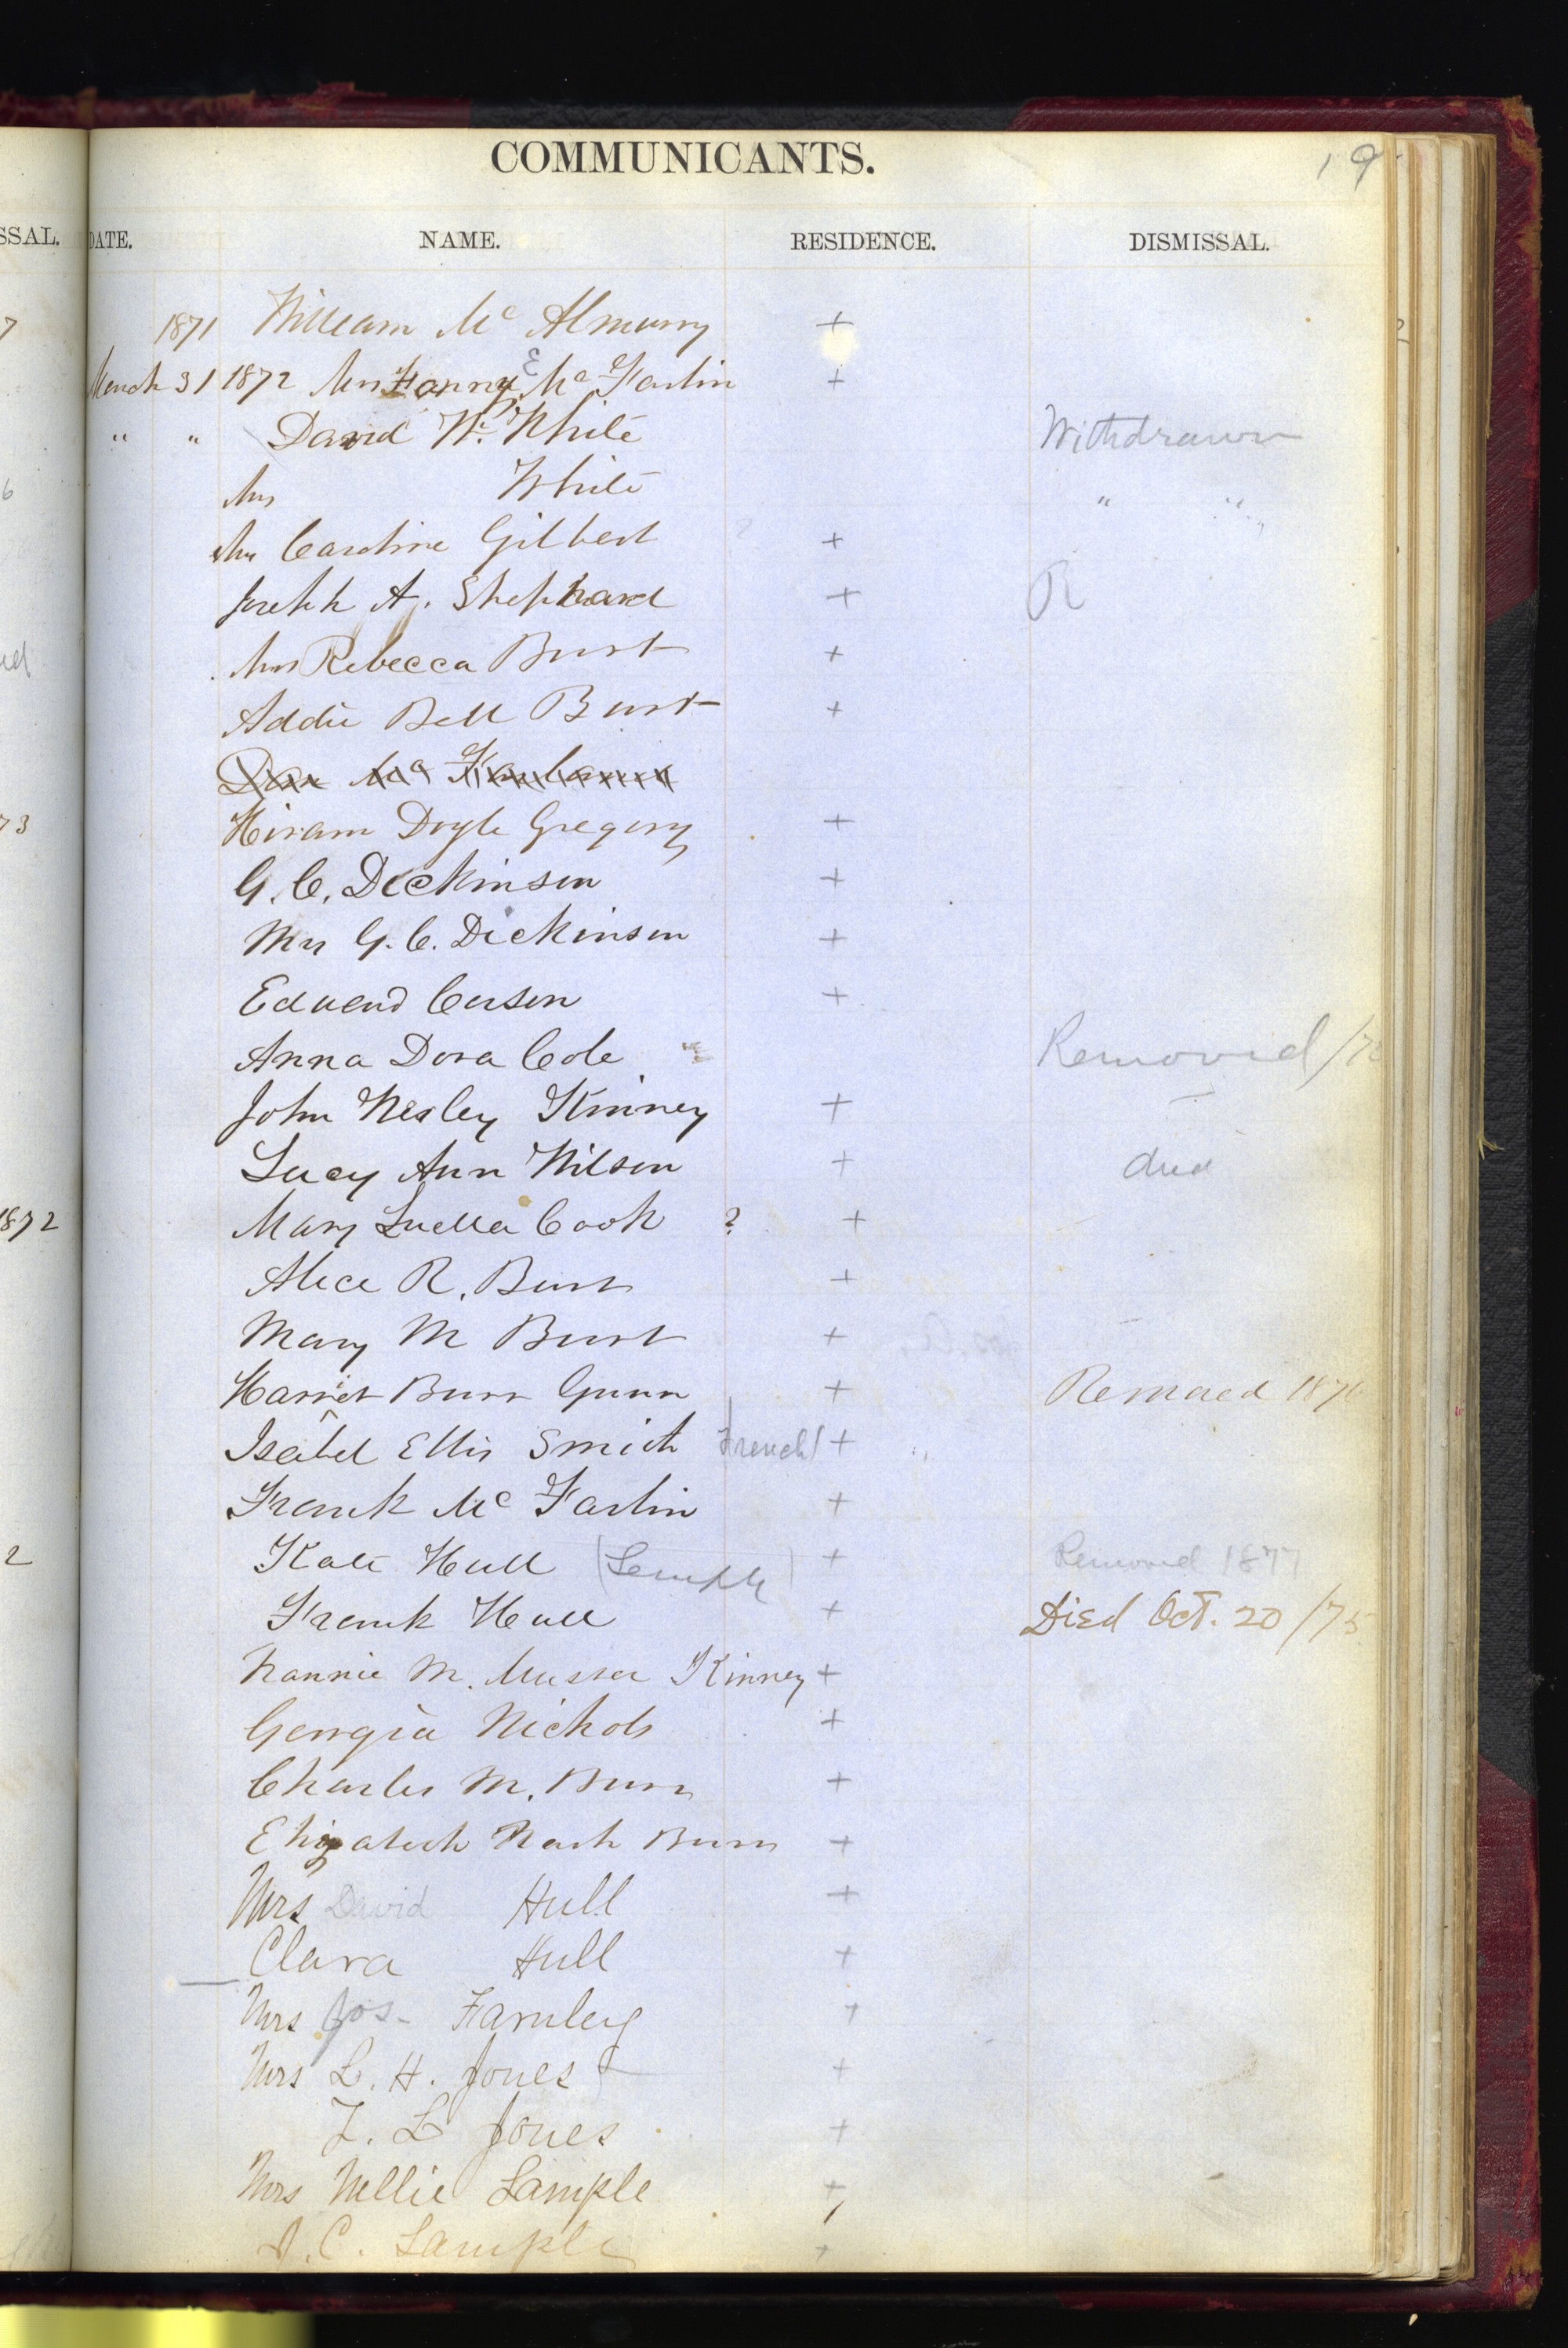 COMMUNICANTS. 19
DATE. NAME. RESIDENCE. DISMISSAL.
1871 William Mc Almurry +
March 31 1872 Mrs Fanny E Mc Farlin +
" " David W. White Withdrawn
Mrs White " "
Mrs Caroline Gilbert +
Joseph A. Shephard + R
Mrs Rebecca Burt +
Addie Bell Burt +
Hiram Doyle Gregory +
G. C. Dickinson +
Mrs G. C. Dickinson +
Edward Carson +
Anna Dora Cole Removed
John Wesley Kinney +
Lucy Ann Wilson + died
Mary Luella Cook ? +
Alice R. Burt +
Mary M Burt +
Harriet Burr Gunn + Removed
Isabel Ellis Smith French +
Frank Mc Farlin +
Kate Hull (Semple) + Removed 1877
Frank Hull + Died Oct. 20 /75
Nannie M. Musser Kinney +
Georgia Nichols +
Charles M. Burr +
Elizabeth Nash Burr +
Mrs David Hull +
Clara Hull +
Mrs Jos- Farnley +
Mrs L. H. Jones +
L. Jones +
Mrs Nellie Sample +
C. Sample +